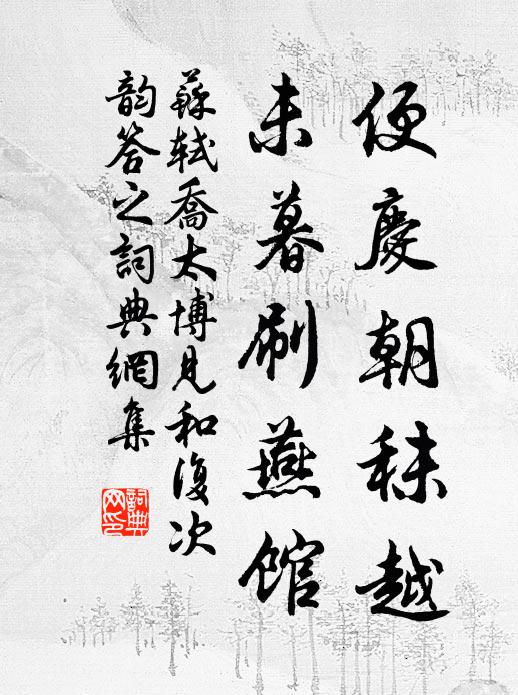 便慶朝秣越
未暮刷燕館
蘇軾喬太博見和復次
韵答之詞典網集
詞典
网印